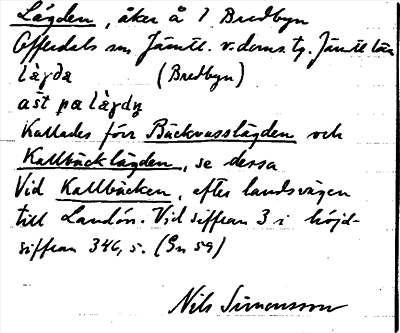 Lägden, åker å 1 Bredbyn
Offerdals sn Jämtl. v. doms. tg. Jämtl län
lä̀gda (Bredbyn)
ašt pa lä̀gdn̥
Kallades förr Bäckvasslägden och
Kallbäcklägden, se dessa
Vid Kallbäcken, efter landsvägen
till Landön. Vid siffran 3 i höjd-
siffran 346,5. (Gn 59)
Nils Simonsson